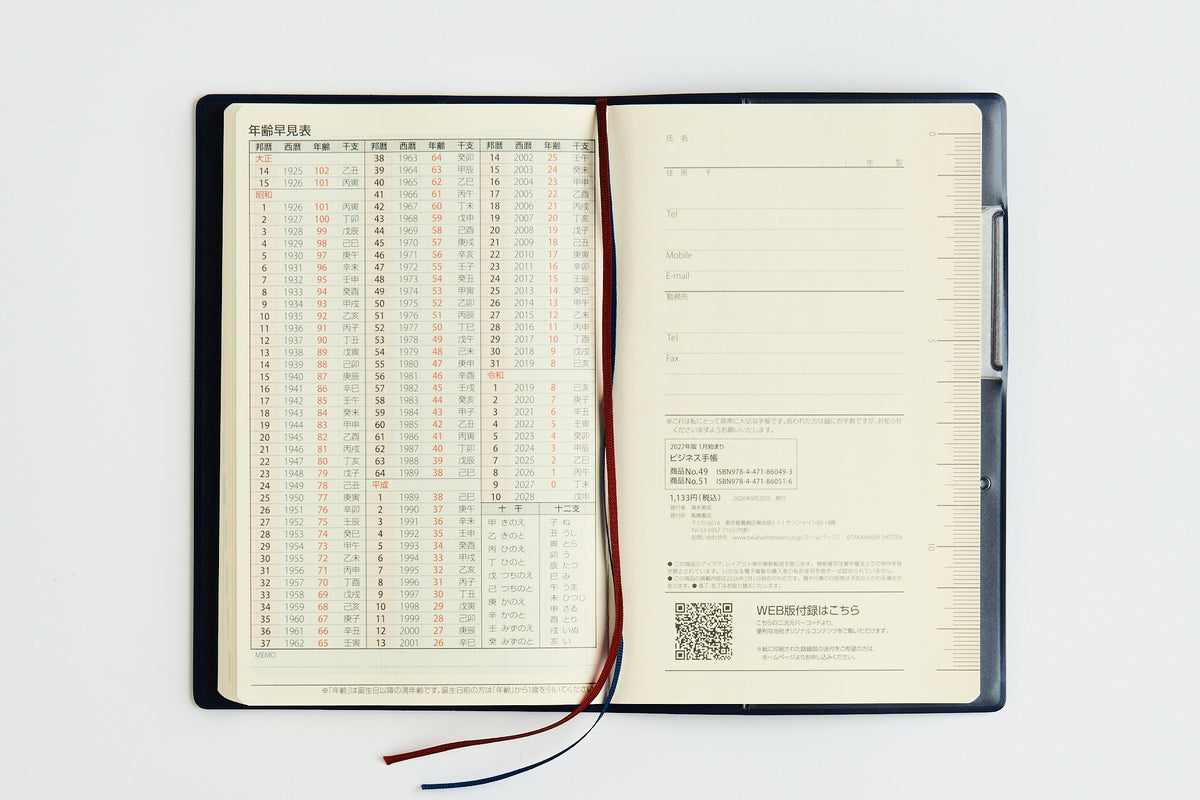 年齢早見表
邦暦 西暦 年齢 干支
大正
14 1925 102 乙丑
15 1926 101 丙寅
昭和
1 1926 101 丙寅
2 1927 100 丁卯
3 1928 99 戊辰
4 1929 98 己巳
5 1930 97 庚午
6 1931 96 辛未
7 1932 95 壬申
8 1933 94 癸酉
9 1934 93 甲戌
10 1935 92 乙亥
11 1936 91 丙子
12 1937 90 丁丑
13 1938 89 戊寅
14 1939 88 己卯
15 1940 87 庚辰
16 1941 86 辛巳
17 1942 85 壬午
18 1943 84 癸未
19 1944 83 甲申
20 1945 82 乙酉
21 1946 81 丙戌
22 1947 80 丁亥
23 1948 79 戊子
24 1949 78 己丑
25 1950 77 庚寅
26 1951 76 辛卯
27 1952 75 壬辰
28 1953 74 癸巳
29 1954 73 甲午
30 1955 72 乙未
31 1956 71 丙申
32 1957 70 丁酉
33 1958 69 戊戌
34 1959 68 己亥
35 1960 67 庚子
36 1961 66 辛丑
37 1962 65 壬寅
邦暦 西暦 年齢 干支
38 1963 64 癸卯
39 1964 63 甲辰
40 1965 62 乙巳
41 1966 61 丙午
42 1967 60 丁未
43 1968 59 戊申
44 1969 58 己酉
45 1970 57 庚戌
46 1971 56 辛亥
47 1972 55 壬子
48 1973 54 癸丑
49 1974 53 甲寅
50 1975 52 乙卯
51 1976 51 丙辰
52 1977 50 丁巳
53 1978 49 戊午
54 1979 48 己未
55 1980 47 庚申
56 1981 46 辛酉
57 1982 45 壬戌
58 1983 44 癸亥
59 1984 43 甲子
60 1985 42 乙丑
61 1986 41 丙寅
62 1987 40 丁卯
63 1988 39 戊辰
64 1989 38 己巳
平成
1 1989 38 己巳
2 1990 37 庚午
3 1991 36 辛未
4 1992 35 壬申
5 1993 34 癸酉
6 1994 33 甲戌
7 1995 32 乙亥
8 1996 31 丙子
9 1997 30 丁丑
10 1998 29 戊寅
11 1999 28 己卯
12 2000 27 庚辰
13 2001 26 辛巳
邦暦 西暦 年齢 干支
14 2002 25 壬午
15 2003 24 癸未
16 2004 23 甲申
17 2005 22 乙酉
18 2006 21 丙戌
19 2007 20 丁亥
20 2008 19 戊子
21 2009 18 己丑
22 2010 17 庚寅
23 2011 16 辛卯
24 2012 15 壬辰
25 2013 14 癸巳
26 2014 13 甲午
27 2015 12 乙未
28 2016 11 丙申
29 2017 10 丁酉
30 2018 9 戊戌
31 2019 8 己亥
令和
1 2019 8 己亥
2 2020 7 庚子
3 2021 6 辛丑
4 2022 5 壬寅
5 2023 4 癸卯
6 2024 3 甲辰
7 2025 2 乙巳
8 2026 1 丙午
9 2027 0 丁未
10 2028 戊申
十干
甲 きのえ
乙 きのと
丙 ひのえ
丁 ひのと
戊 つちのえ
己 つちのと
庚 かのえ
辛 かのと
壬 みずのえ
癸 みずのと
十二支
子 ね
丑 うし
寅 とら
卯 う
辰 たつ
巳 み
午 うま
未 ひつじ
申 さる
酉 とり
戌 いぬ
亥 い
MEMO
※「年齢」は誕生日以降の満年齢です。誕生日前の方は「年齢」から1歳を引いてくださ
氏 名
・ ・ 生 型
住 所 〒
Tel
Mobile
E-mail
勤務先
Tel
Fax
※これは私にとって非常に大切な手帳です。拾われた方は誠にお手数ですが、お知らせ
くださいますようお願いいたします。
2027年版 1月始まり
ビジネス手帳
商品No.49 ISBN978-4-471-86049-3
商品No.51 ISBN978-4-471-86051-6
1,133円(税込) 2026年9月20日 発行
発行者 清水美成
発行所 高橋書店
〒170-6014 東京都豊島区東池袋3-1-1 サンシャイン60 14階
Tel 03-5957-7103(代表)
お問い合わせ先 www.takahashishoten.co.jp(ホームページ) ©TAKAHASHI SHOTEN
● この商品のアイデア、レイアウト等の無断転用を禁じます。無断複写は著作権法上での例外を除
き禁止されています。いかなる電子複製も購入者の私的使用を除き一切認められていません。
● この商品の掲載内容は2026年2月1日現在のものです。暦や行事の日程等は予告なくかわる場合が
あります。● 落丁・乱丁はお取り替えいたします。
WEB版付録はこちら
こちらの二次元バーコードより、
便利な当社オリジナルコンテンツをご覧いただけます。
※紙に印刷された路線図の送付をご希望の方は、
ホームページよりお申し込みください。
0
5
10